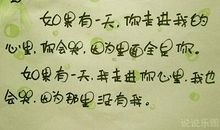 如果有一天,你走进我的
心里,你会哭,因为里面全是你。
如果有一天,我走进你心里,我也
会哭,因为那里没有我。